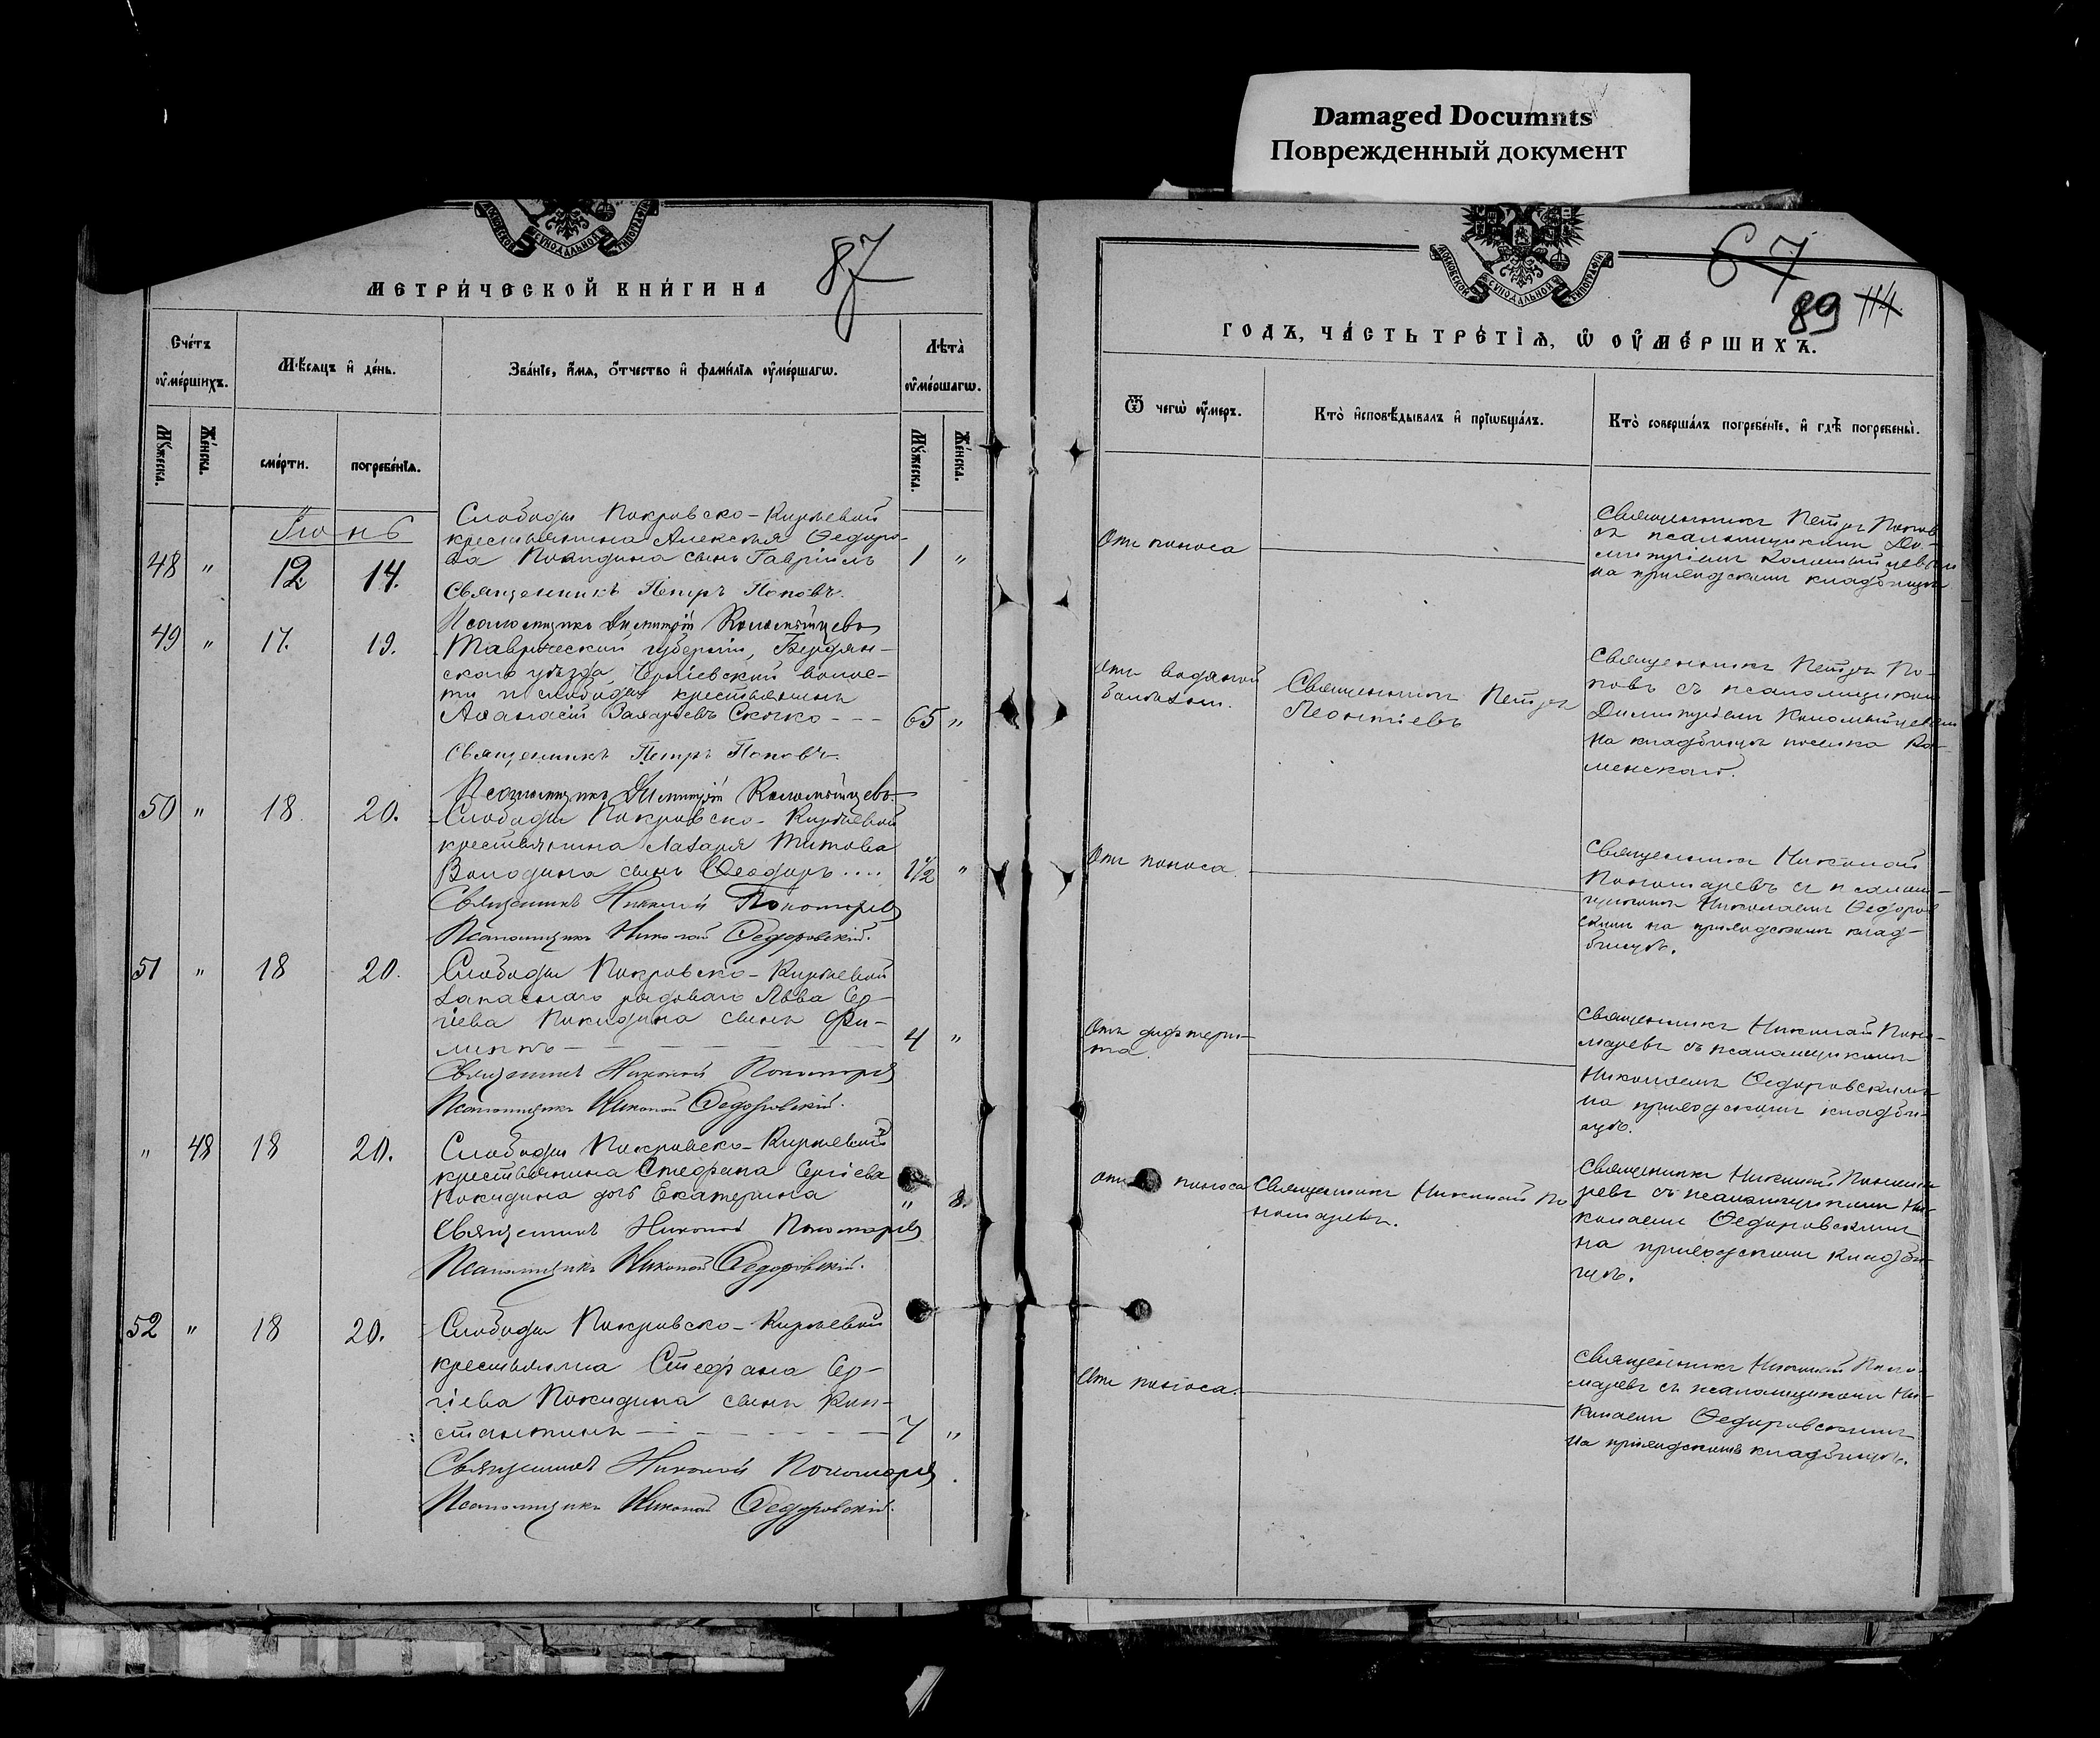 Damaged Documnts
Поврежденный документ
МОСКОВСКОЙ СѴНОДАЛЬНОЙ ТИПОГРАФІИ
87
МЕТРИ́ЧЕСКОЙ КНИ́ГИ НА
Сче́тъ ᲂу҆ме́ршихъ.
Мѣ́сяцъ и҆ де́нь.
Зва́нїе, и҆́мя, ѻ҆́тчество и҆ фами́лїя ᲂу҆ме́ршагѡ.
Лѣта̀ ᲂу҆ме́ршагѡ.
Мꙋ́жеска.
Же́нска.
сме́рти.
погребе́нїя.
Мꙋ́жеска.
Же́нска.
Іюнь
Слободы Покровско-Киреевой
крестьянина Алексѣя Ѳедоро-
48 " 12. 14. ва Покидина сынъ Гавріилъ 1 "
Священникъ Петръ Поповъ.
Псаломщикъ Димитрій Коломыйцевъ
49 " 17. 19. Таврической губерніи, Бердян-
скаго уѣзда, волос-
ти и слободы крестьянинъ
Аѳанасій Захарьевъ Скочко - - - 65 "
Священникъ Петръ Поповъ.
Псаломщикъ Димитрій Коломыйцевъ
50 " 18. 20. Слободы Покровско-Киреевой
крестьянина Лазаря Титова
Володина сынъ Ѳеодоръ .... 1½ "
Священникъ Николай Пономаревъ
Псаломщикъ Николай Ѳедоровскій.
51 " 18 20. Слободы Покровско-Киреевой
запаснаго рядоваго Льва Сер-
гіева Покидина сынъ Фи-
липпъ - - - 4 "
Священникъ Николай Пономаревъ
Псаломщикъ Николай Ѳедоровскій.
" 48 18 20. Слободы Покровско-Киреевой
крестьянина Стефана Сергіева
Покидина дочь Екатерина " 8.
Священникъ Николай Пономаревъ
Псаломщикъ Николай Ѳедоровскій.
52 " 18 20. Слободы Покровско-Киреевой
крестьянина Стефана Сер-
гіева Покидина сынъ Кон-
стантинъ - - - 7 "
Священникъ Николай Пономаревъ.
Псаломщикъ Николай Ѳедоровскій.
МОСКОВСКОЙ СѴНОДАЛЬНОЙ ТИПОГРАФІИ
67
89 114
ГОДЪ, ЧА́СТЬ ТРЕ́ТІѦ, Ѡ҆ ОУ҆МЕ́РШИХЪ.
Ѿ чегѡ̀ ᲂу҆́меръ.
Кто̀ и҆сповѣ́дывалъ и҆ прїѡбща́лъ.
Кто̀ соверша́лъ погребе́нїе, и҆ гдѣ̀ погребены̀.
Отъ поноса
Священникъ Петръ Поповъ
съ псаломщикомъ Ди-
митріемъ Коломыйцевымъ
на приходскомъ кладбищѣ
Отъ водяной
болѣзни.
Священникъ Петръ
Леонтіевъ
Священникъ Петръ По-
повъ съ псаломщикомъ
Димитріемъ Коломыйцевымъ
на кладбищѣ поселка Ка-
менскаго.
Отъ поноса.
Священникъ Николай
Пономаревъ съ псалом-
щикомъ Николаемъ Ѳедоров-
скимъ на приходскомъ клад-
бищѣ.
Отъ дифтери-
та.
Священникъ Николай Поно-
маревъ съ псаломщикомъ
Николаемъ Ѳедоровскимъ
на приходскомъ кладби-
щѣ.
Отъ поноса
Священникъ Николай По
номаревъ.
Священникъ Николай Понома-
ревъ съ псаломщикомъ Ни-
колаемъ Ѳедоровскимъ
на приходскомъ кладби-
щѣ.
Отъ поноса.
Священникъ Николай Поно-
маревъ съ псаломщикомъ Ни-
колаемъ Ѳедоровскимъ
на приходскомъ кладбищѣ.